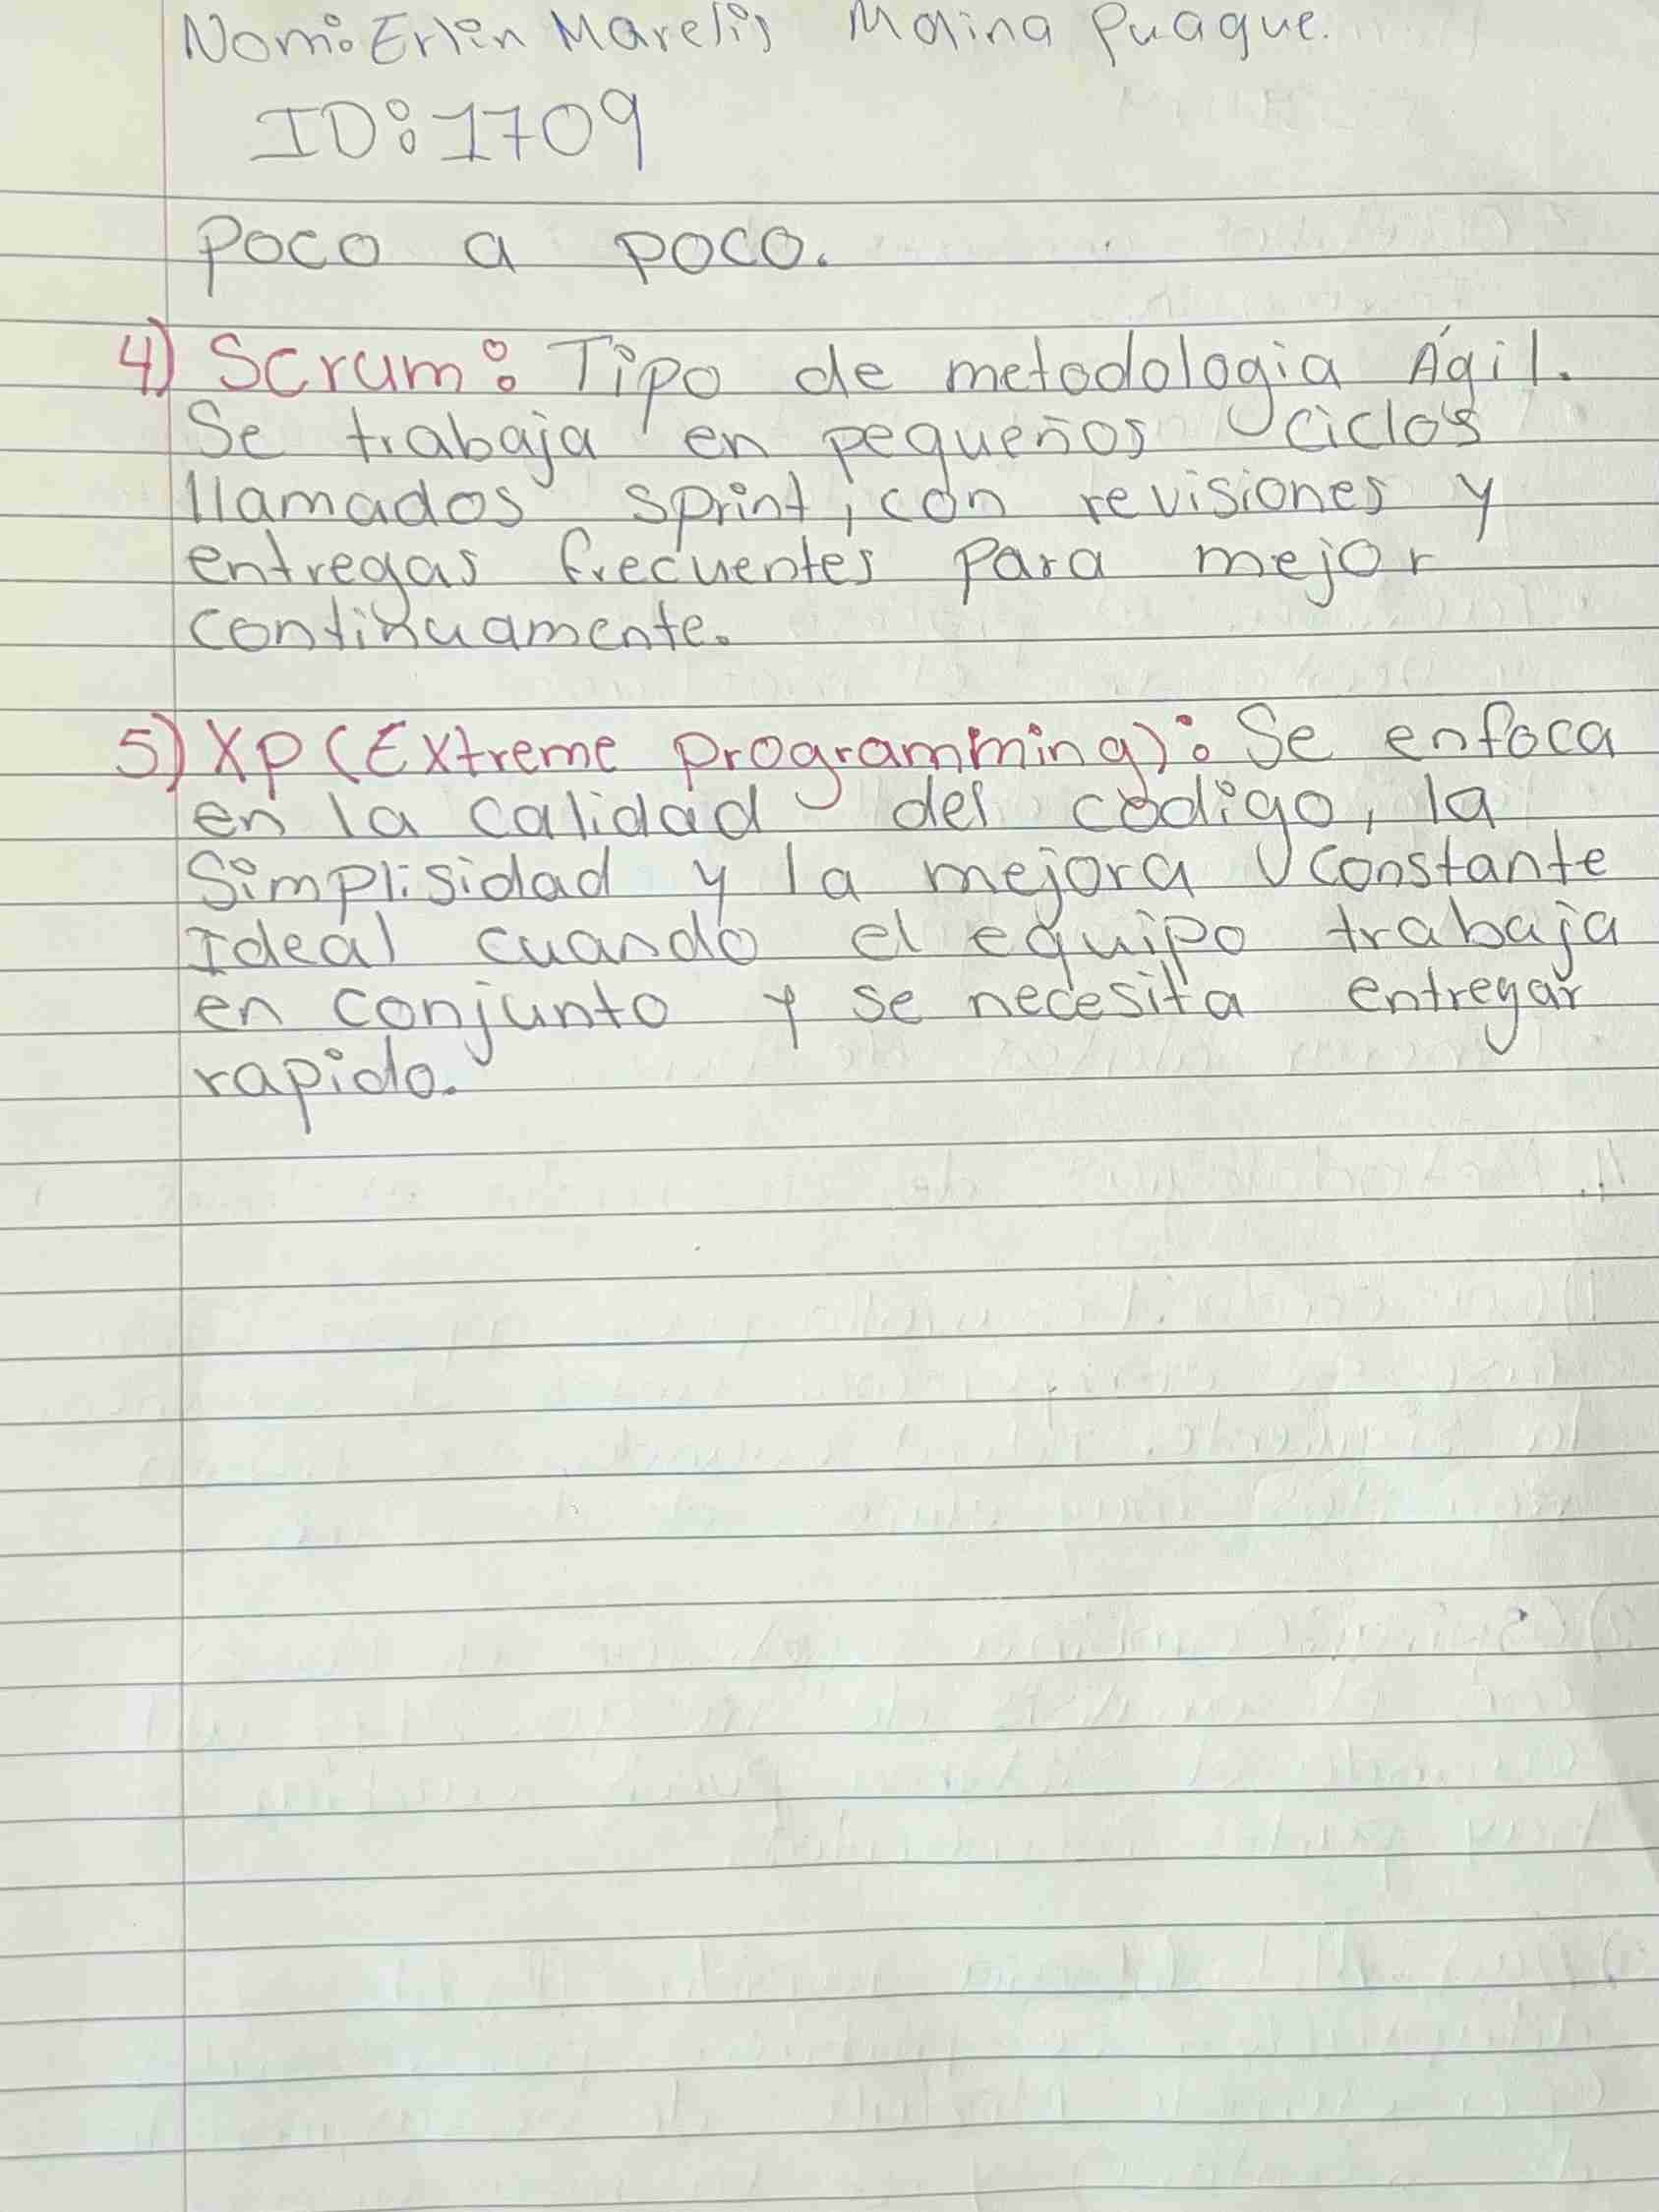 Nom: Erlin Marelis Molina Puaque.
ID: 1709
Poco a poco.
4) Scrum: Tipo de metodologia Ágil.
Se trabaja en pequeños ciclos
llamados sprint, con revisiones y
entregas frecuentes para mejor
continuamente.
5) XP (Extreme programming): Se enfoca
en la calidad del codigo, la
Simplisidad y la mejora constante
Ideal cuando el equipo trabaja
en conjunto y se necesita entregar
rapido.